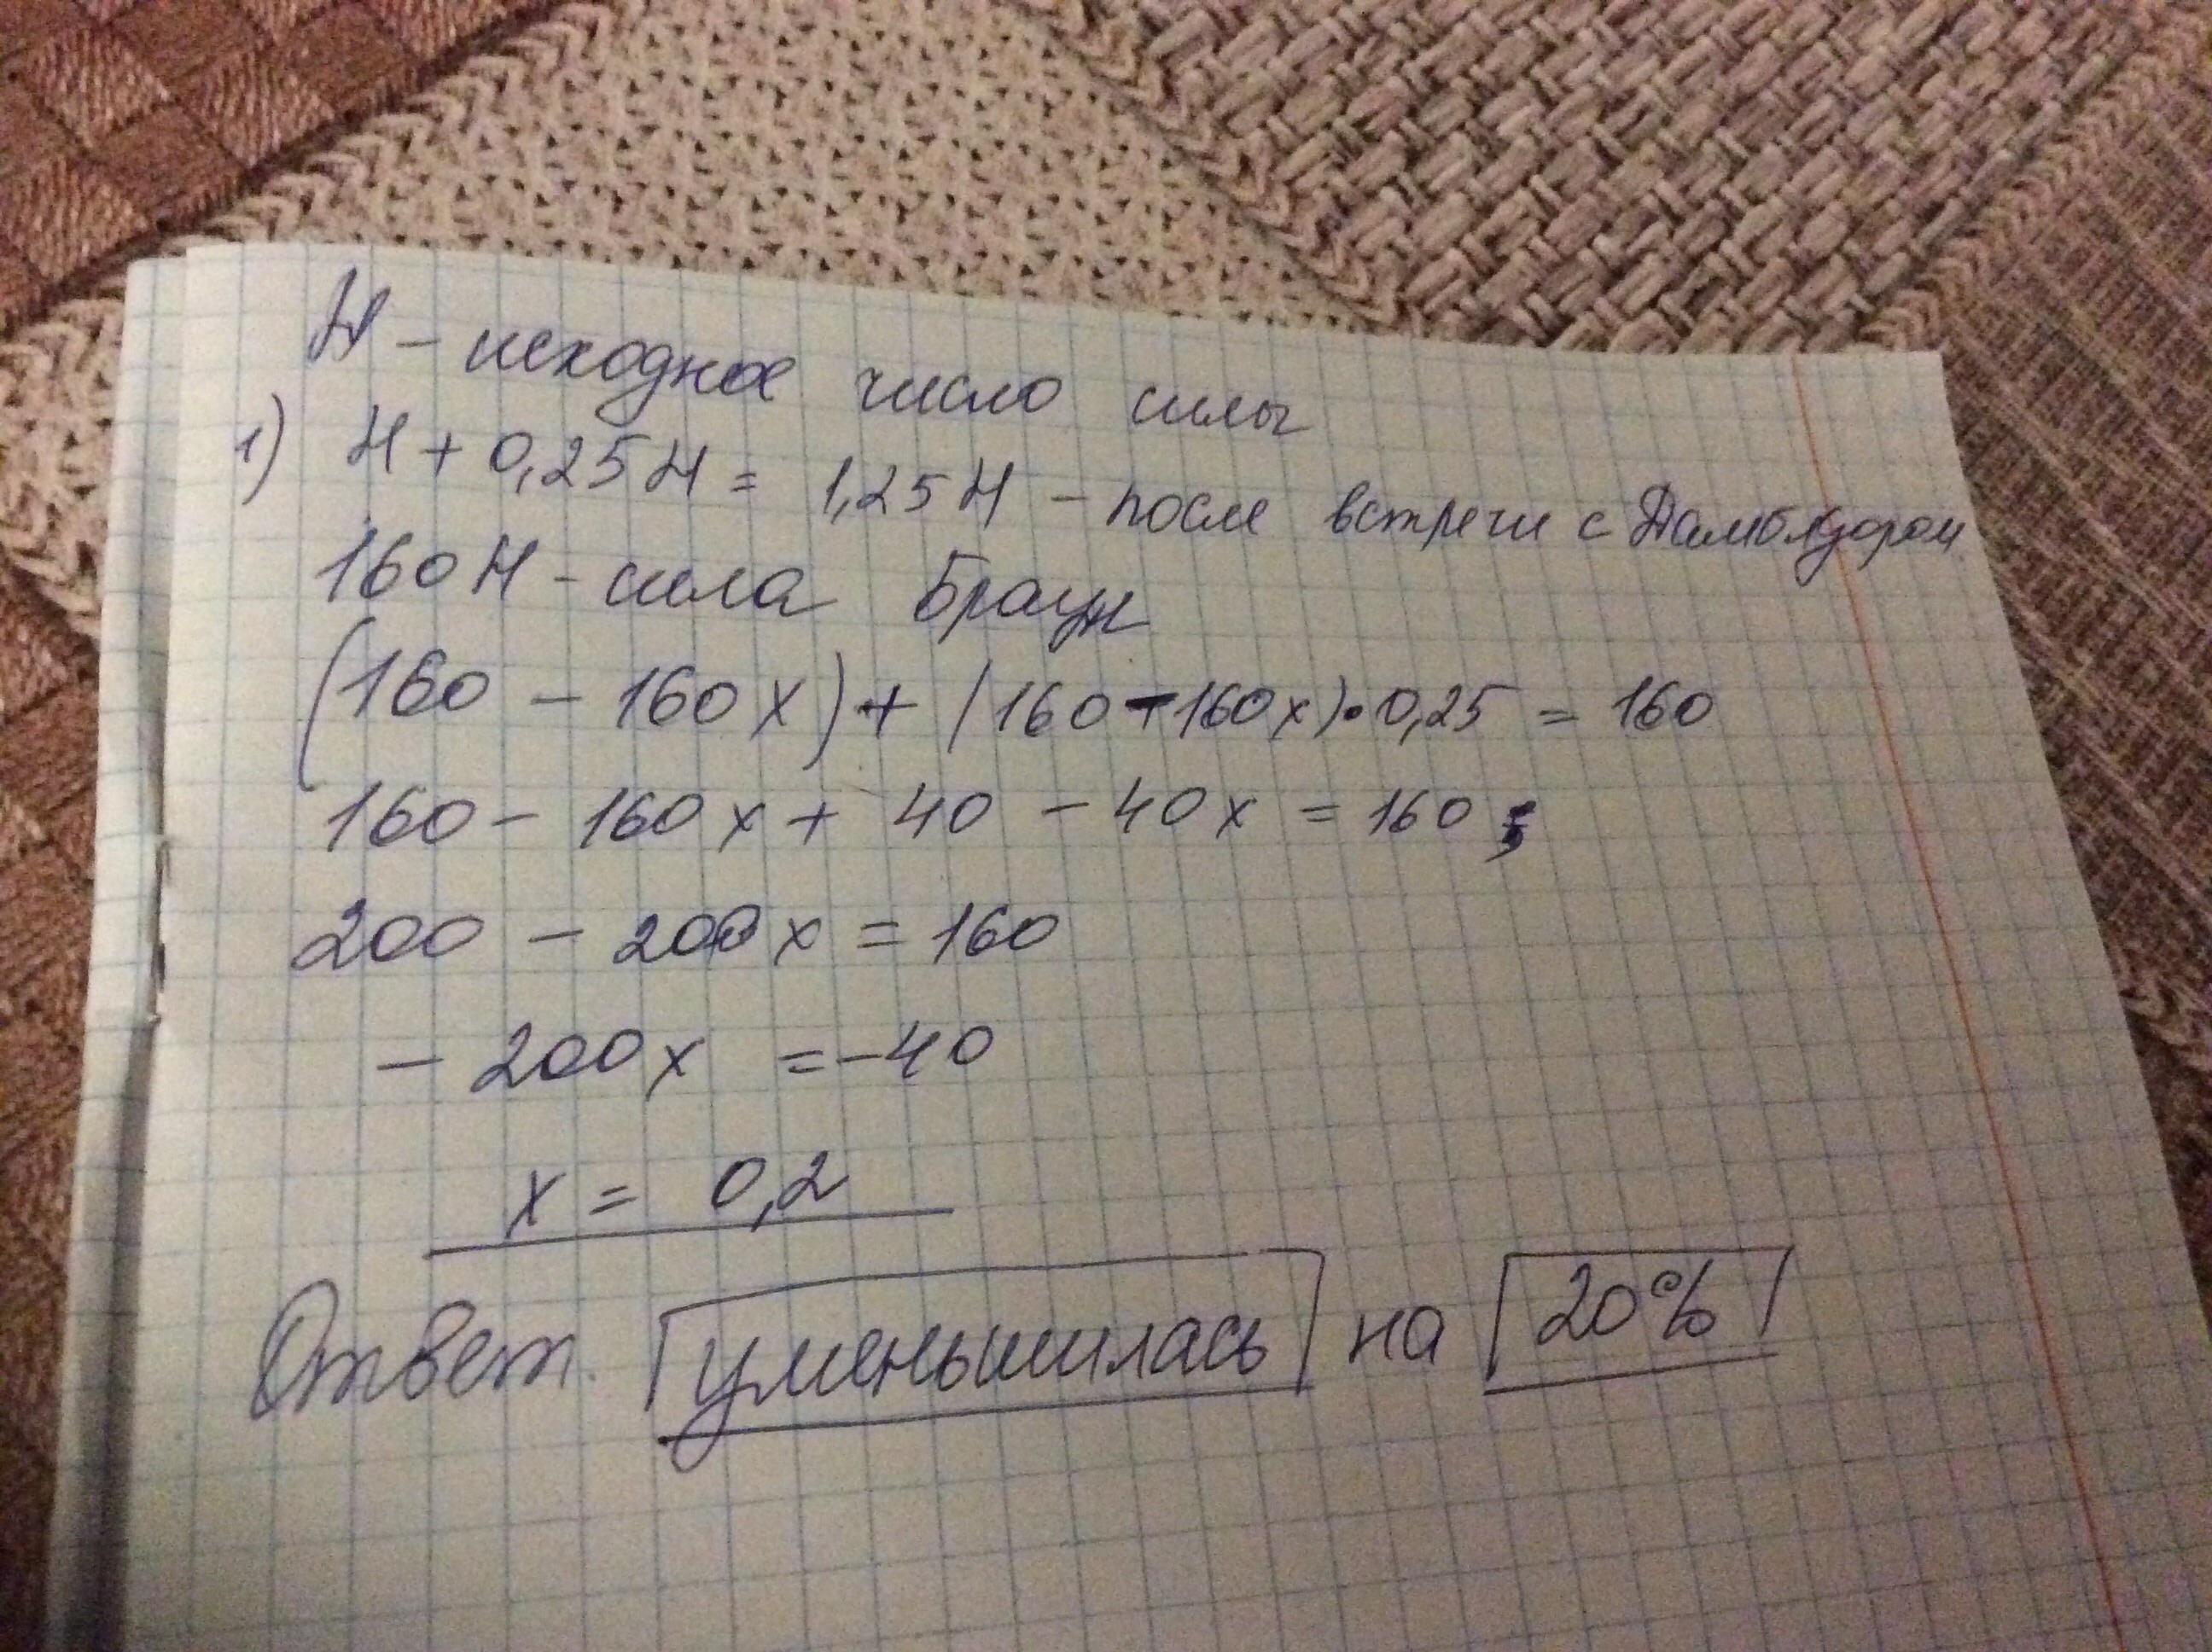 Н – исходное число силы
1) Н + 0,25Н = 1,25Н – после встречи с Дамблдором
160Н – сила Браун
(160 – 160х) + (160 – 160х) • 0,25 = 160
160 – 160х + 40 – 40х = 160;
200 – 200х = 160
– 200х = –40
х = 0,2
Ответ. уменьшилась на 20%